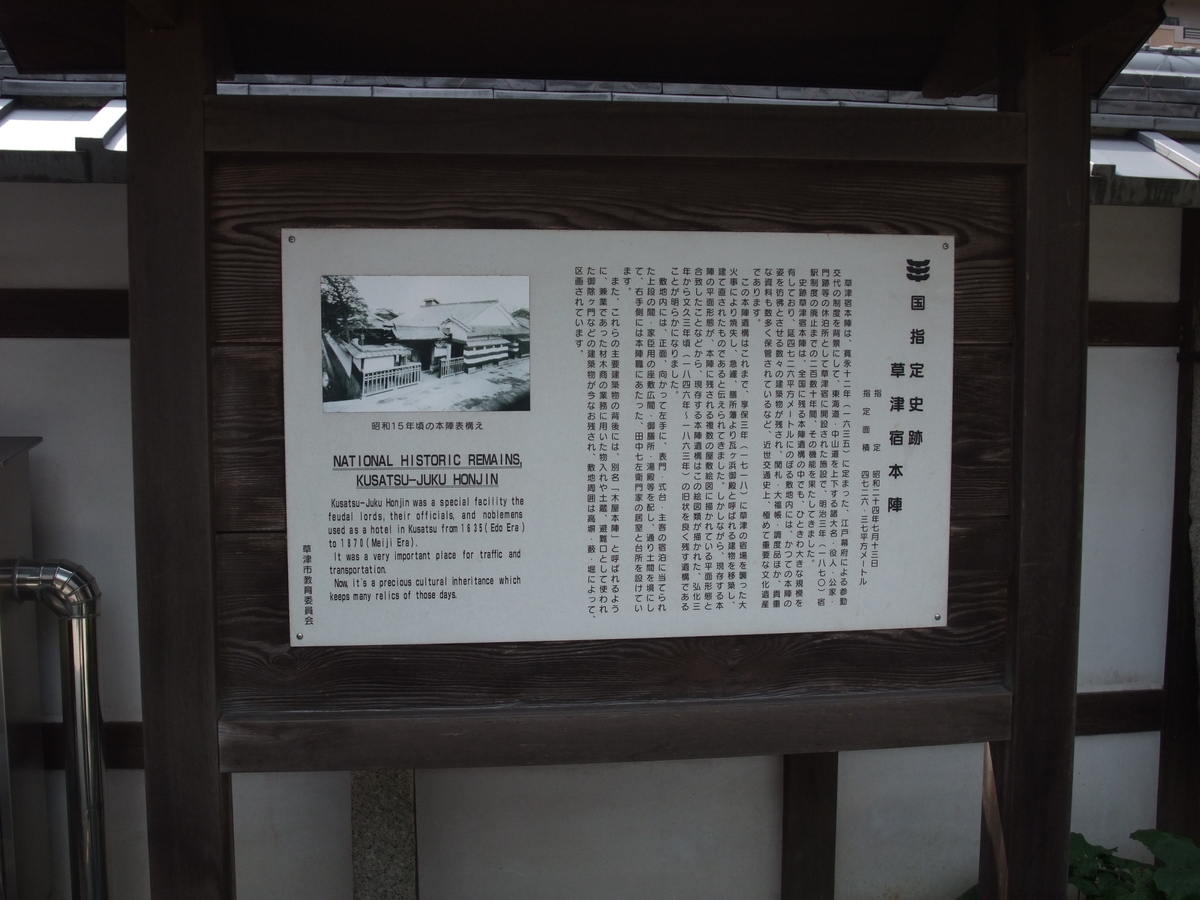 国指定史跡
草津宿本陣
指定 昭和二十四年七月十三日
指定面積 四七二六・三七平方メートル
草津宿本陣は、寛永十二年(一六三五)に定まった、江戸幕府による参勤
交代の制度を背景にして、東海道・中山道を上下する諸大名・役人・公家・
門跡等の休泊所として草津宿に開設された施設で、明治三年(一八七〇)宿
駅制度の廃止までの二百数十年間、その機能を果たしてきました。
史跡草津宿本陣は、全国に残る本陣遺構の中でも、ひときわ大きな規模を
有しており、延四七二六平方メートルにのぼる敷地内には、かつての本陣の
姿を彷彿とさせる数々の建築物が残され、関札・大福帳・調度品ほか、貴重
な資料も数多く保管されているなど、近世交通史上、極めて重要な文化遺産
であります。
この本陣遺構はこれまで、享保三年(一七一八)に草津の宿場を襲った大
火事により焼失し、急遽、膳所藩より瓦ヶ浜御殿と呼ばれる建物を移築し、
建て直されたものであると伝えられてきました。しかしながら、現存する本
陣の平面形態が、本陣に残される複数の屋敷絵図に描かれている平面形態と
合致したことなどから、現存する本陣遺構はこの絵図類が描かれた、弘化三
年から文久三年頃(一八四六年~一八六三年)の旧状を良く残す遺構である
ことが明らかになりました。
敷地内には、正面、向かって左手に、表門・式台・主客の宿泊に当てられ
た上段の間・家臣用の座敷広間・御膳所・湯殿等を配し、通り土間を境にし
て、右手側には本陣職にあたった、田中七左衛門家の居室と台所を設けてい
ます。
また、これらの主要建築物の背後には、別名「木屋本陣」と呼ばれるよう
に、兼業であった材木商の業務に用いた物入れや土蔵、避難口として使われ
た御除ヶ門などの建築物が今なお残され、敷地周囲は高塀・藪・堀によって、
区画されています。
昭和15年頃の本陣表構え
NATIONAL HISTORIC REMAINS,
KUSATSU-JUKU HONJIN
Kusatsu-Juku Honjin was a special facility the
feudal lords, their officials, and noblemens
used as a hotel in Kusatsu from 1635(Edo Era)
to 1870(Meiji Era).
It was a very important place for traffic and
transportation.
Now, it's a precious cultural inheritance which
keeps many relics of those days.
草津市教育委員会